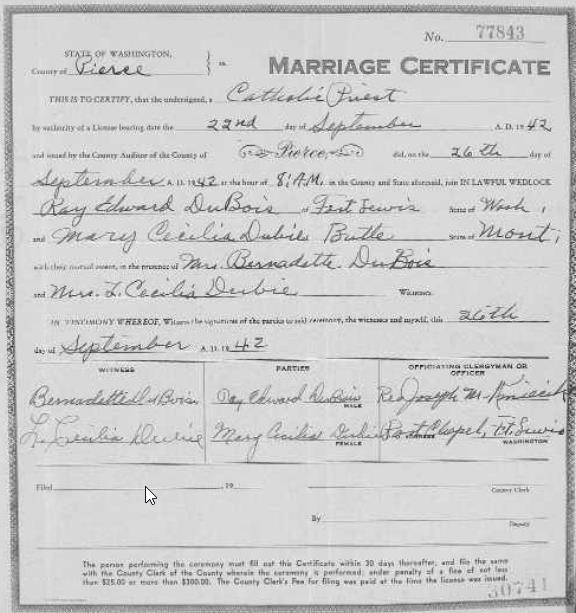 No. 77843
STATE OF WASHINGTON,
County of Pierce } ss.
MARRIAGE CERTIFICATE
THIS IS TO CERTIFY, that the undersigned, a Catholic Priest
by authority of a License bearing date the 22nd day of September A. D. 1942
and issued by the County Auditor of the County of Pierce, did, on the 26th day of
September A. D. 1942 at the hour of 8 A.M. in the County and State aforesaid, join IN LAWFUL WEDLOCK
Ray Edward DuBois of Fort Lewis State of Wash,
and Mary Cecilia Butte State of Mont,
with their mutual assent, in the presence of Mrs. Bernadette DuBois
and Mrs. L. Cecilia Witnesses.
IN TESTIMONY WHEREOF, Witness the signatures of the parties to said ceremony, the witnesses and myself, this 26th
day of September A. D. 1942
WITNESS PARTIES OFFICIATING CLERGYMAN OR OFFICER
Bernadette DuBois Ray Edward DuBois Rev Joseph M.
MALE
L. Cecilia Mary Cecilia Post Chapel, Ft. Lewis
FEMALE ADDRESS WASHINGTON
Filed , 19
County Clerk
By
Deputy
The person performing the ceremony must fill out this Certificate within 30 days thereafter, and file the same
with the County Clerk of the County wherein the ceremony is performed; under penalty of a fine of not less
than $25.00 or more than $300.00. The County Clerk's Fee for filing was paid at the time the license was issued.
30741